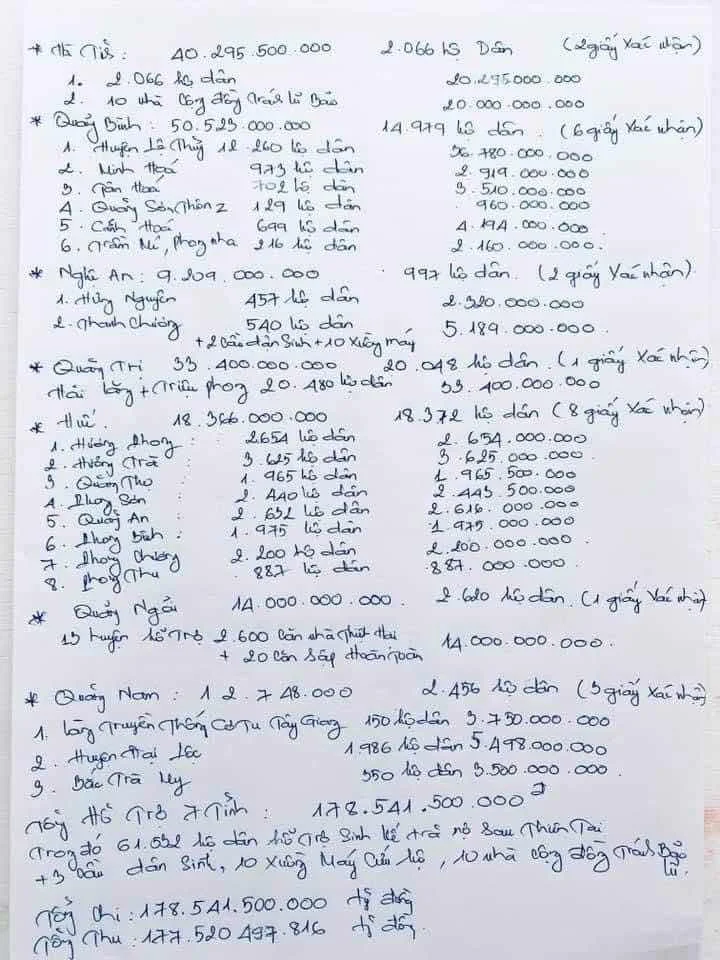 * Hà Tĩnh : 40.295.500.000 2.066 hộ Dân (2 giấy xác nhận)
1. 2.066 hộ dân 20.295.000.000
2. 10 nhà cộng đồng tránh lũ Bão 20.000.000.000
* Quảng Bình : 50.523.000.000 14.979 hộ dân . (6 giấy xác nhận)
1. Huyện Lệ Thủy 12.260 hộ dân 36.780.000.000
2. Minh Hoá 973 hộ dân 2.919.000.000
3. Tân Hoá 702 hộ dân 3.510.000.000
4. Quảng Sơn, Thôn 2 129 hộ dân 960.000.000
5. Cảnh Hoá 699 hộ dân 4.194.000.000
6. Trằm Mé, Phong nha 216 hộ dân 2.160.000.000.
* Nghệ An : 9.209.000.000 997 hộ dân. (2 giấy xác nhận)
1. Hưng Nguyên 457 hộ dân 2.320.000.000
2. Thanh Chương 540 hộ dân 5.189.000.000.
+ 2 cầu dân Sinh + 10 xuồng máy
* Quảng Trị 33.400.000.000 20.048 hộ dân. (1 giấy xác nhận)
Hải lăng + Triệu phong 20.480 hộ dân 33.400.000.000
* Huế. 18.366.000.000 18.372 hộ dân (8 giấy xác nhận)
1. Hương Phong : 2654 hộ dân 2.654.000.000
2. Hương Trà : 3.625 hộ dân 3.625.000.000
3. Quảng Thọ : 1.965 hộ dân 1.965.500.000
4. Phong Sơn : 2.440 hộ dân 2.443.500.000
5. Quảng An : 2.632 hộ dân 2.616.000.000
6. Phong Bình : 1.975 hộ dân 1.975.000.000
7. Phong Chương 2.200 hộ dân 2.200.000.000.
8. Phong Thu 887 hộ dân 887.000.000.
* Quảng Ngãi 14.000.000.000. 2.620 hộ dân. (1 giấy xác nhận)
13 huyện hỗ trợ 2.600 căn nhà Thiệt Hại 14.000.000.000.
+ 20 căn sập Hoàn toàn
* Quảng Nam : 12.748.000 2.456 hộ dân (3 giấy xác nhận)
1. Làng Truyền Thống Cơ Tu Tây Giang 150 hộ dân 3.750.000.000
2. Huyện Đại Lộc 1986 hộ dân 5.498.000.000
3. Bắc Trà My 350 hộ dân 3.500.000.000.
Tổng Hỗ Trợ 7 Tỉnh : 178.541.500.000
Trong đó 61.532 hộ dân hỗ trợ Sinh kế trả nợ Sau Thiên Tai
+ 3 cầu dân Sinh, 10 xuồng Máy Cứu hộ, 10 nhà cộng đồng Tránh Bão
lũ.
Tổng Chi : 178.541.500.000 tỷ đồng
Tổng Thu : 177.520.497.816 tỷ đồng.